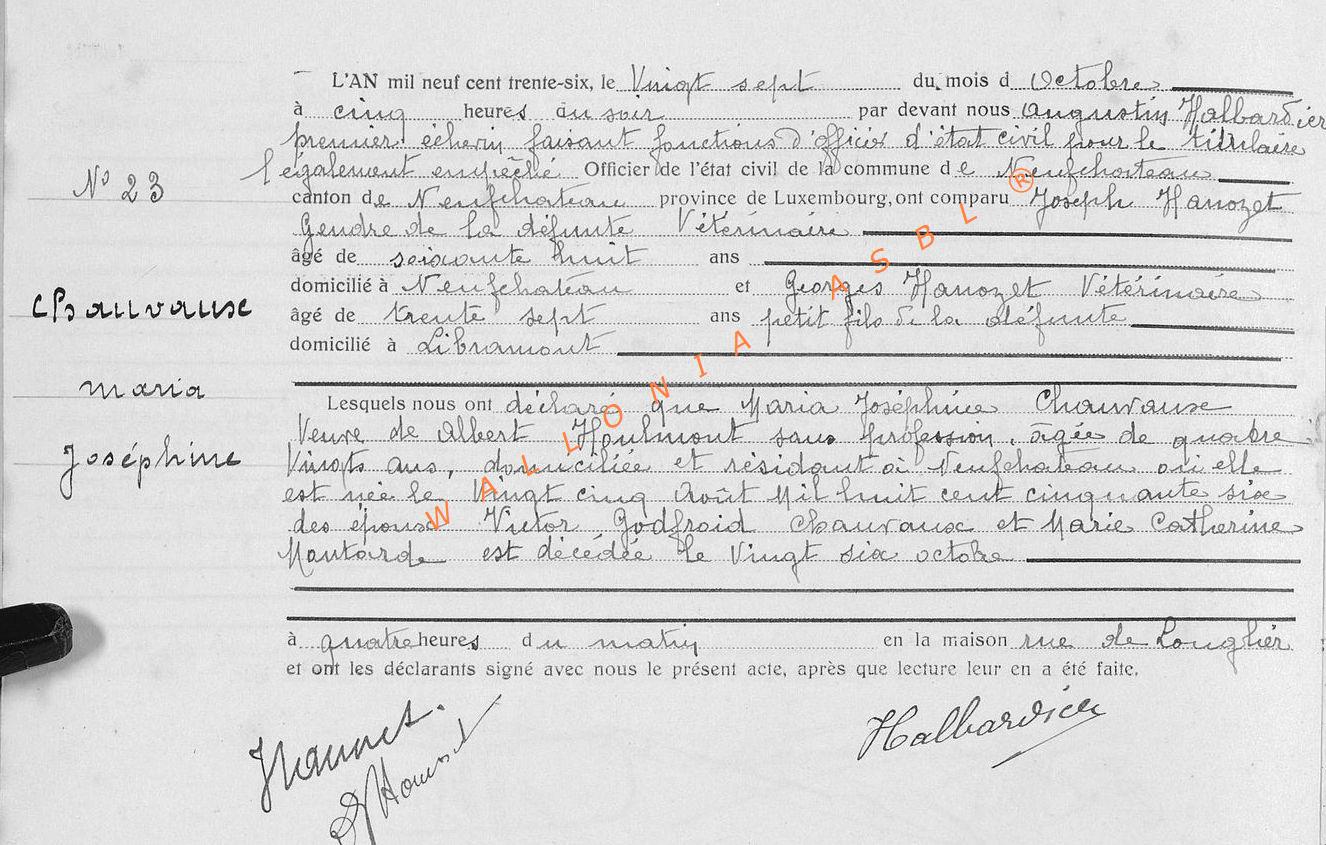 L'AN mil neuf cent trente-six, le Vingt sept du mois d Octobre
à cinq heures du soir par devant nous Augustin Halbardier
premier échevin faisant fonctions d'officier d'état civil pour le titulaire
légalement empêché Officier de l'état civil de la commune de Neufchateau
N° 23
canton de Neufchateau province de Luxembourg, ont comparu Joseph Hanozet
Gendre de la défunte Vétérinaire
âgé de soixante huit ans
domicilié à Neufchateau et Georges Hanozet Vétérinaire
Chauvaux
âgé de trente sept ans petit fils de la défunte
domicilié à Libramont
Maria
Lesquels nous ont déclaré que Maria Joséphine Chauvaux
Veuve de Albert Houlmont sans profession, âgée de quatre
Joséphine
Vingts ans, domiciliée et résidant à Neufchateau où elle
est née le Vingt cinq Août Mil huit cent cinquante six
des époux Victor Godfroid Chauvaux et Marie Catherine
Moutarde est décédée le Vingt six octobre
à quatre heures du matin en la maison rue de Longlier
et ont les déclarants signé avec nous le présent acte, après que lecture leur en a été faite.
Halbardier
WALLONIA ASBL ®